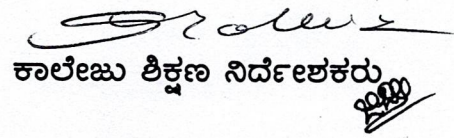 ಕಾಲೇಜು ಶಿಕ್ಷಣ ನಿರ್ದೇಶಕರು